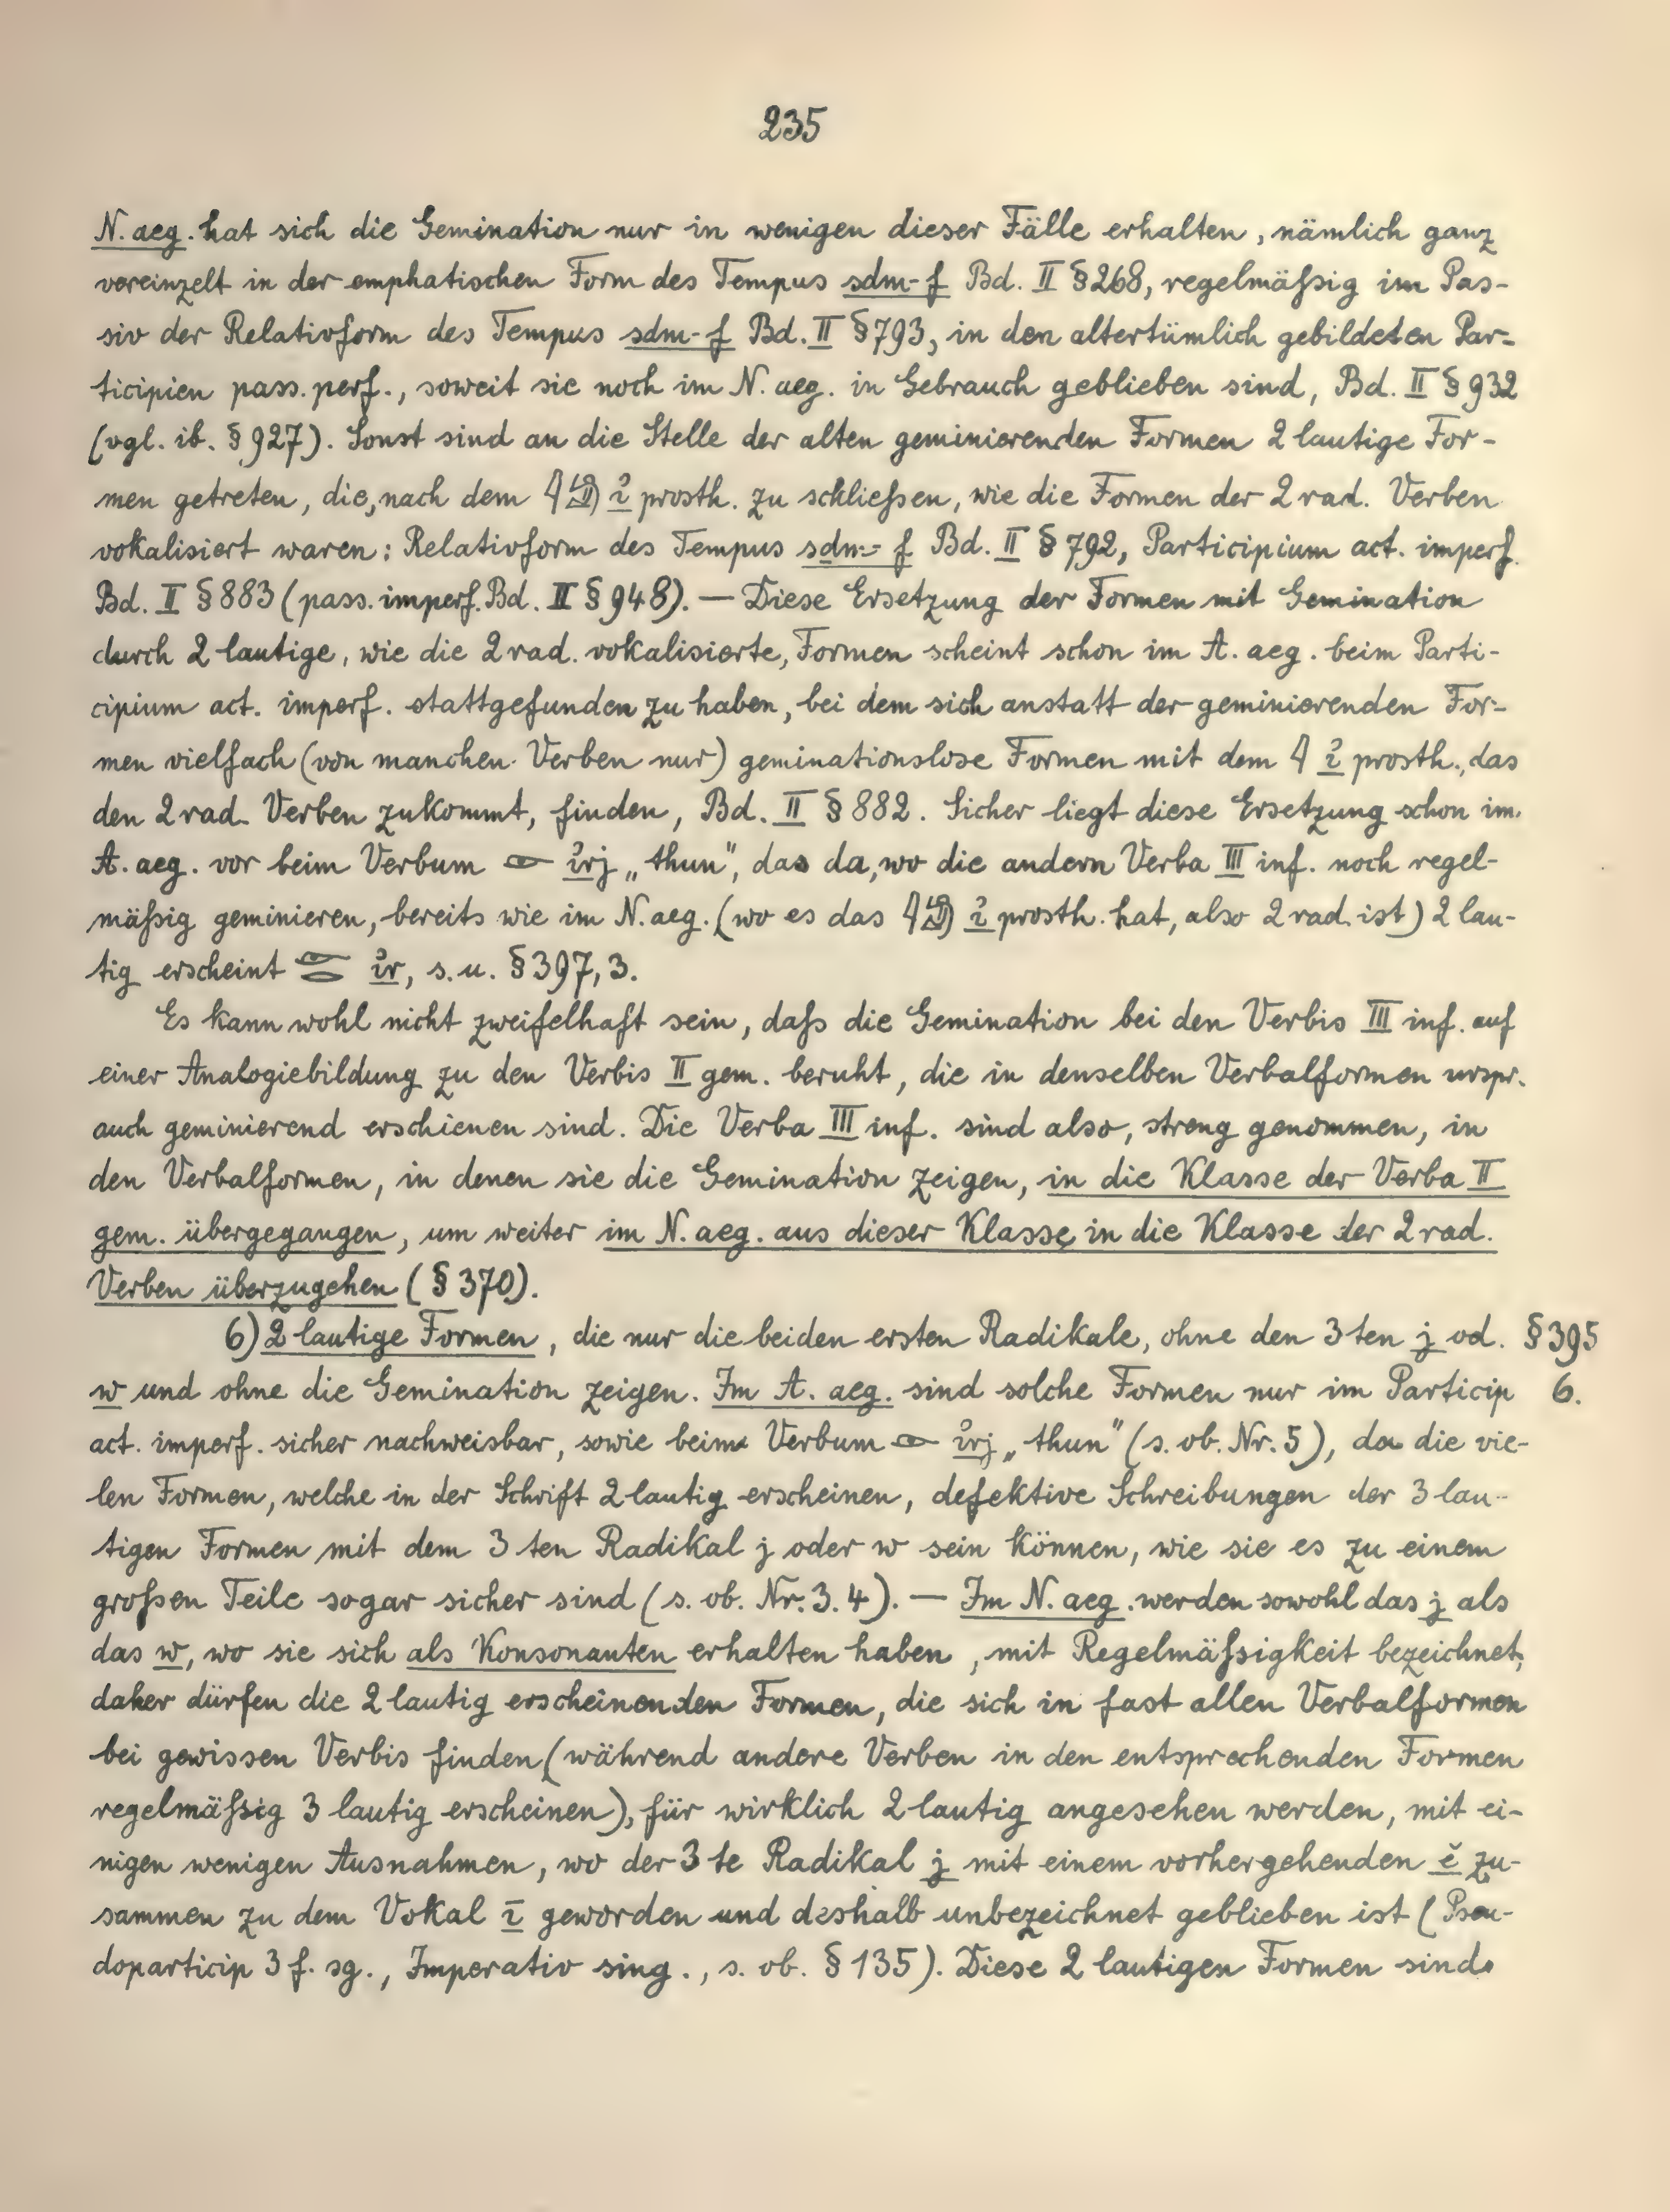 235
N. aeg. hat sich die Gemination nur in wenigen dieser Fälle erhalten, nämlich ganz
vereinzelt in der emphatischen Form des Tempus sdm-f Bd. II § 268, regelmäßig im Pas-
siv der Relativform des Tempus sdm-f Bd. II § 793, in den altertümlich gebildeten Par-
ticipien pass. perf., soweit sie noch im N. aeg. in Gebrauch geblieben sind, Bd. II § 932
(vgl. ib. § 927). Sonst sind an die Stelle der alten geminierenden Formen 2 lautige For-
men getreten, die, nach dem 𓇋𓀁 ỉ prosth. zu schließen, wie die Formen der 2 rad. Verben
vokalisiert waren: Relativform des Tempus sdm-f Bd. II § 792, Participium act. imperf.
Bd. II § 883 (pass. imperf. Bd. II § 948). — Diese Ersetzung der Formen mit Gemination
durch 2 lautige, wie die 2 rad. vokalisierte, Formen scheint schon im A. aeg. beim Parti-
cipium act. imperf. stattgefunden zu haben, bei dem sich anstatt der geminierenden For-
men vielfach (von manchen Verben nur) geminationslose Formen mit dem 𓇋 ỉ prosth., das
den 2 rad. Verben zukommt, finden, Bd. II § 882. Sicher liegt diese Ersetzung schon im
A. aeg. vor beim Verbum 𓁹 ỉrj „thun", das da, wo die andern Verba III inf. noch regel-
mäßig geminieren, bereits wie im N. aeg. (wo es das 𓇋𓀁 ỉ prosth. hat, also 2 rad. ist) 2 lau-
tig erscheint 𓁹𓂋 ỉr, s. u. § 397, 3.
Es kann wohl nicht zweifelhaft sein, daß die Gemination bei den Verbis III inf. auf
einer Analogiebildung zu den Verbis II gem. beruht, die in denselben Verbalformen urspr.
auch geminierend erschienen sind. Die Verba III inf. sind also, streng genommen, in
den Verbalformen, in denen sie die Gemination zeigen, in die Klasse der Verba II
gem. übergegangen, um weiter im N. aeg. aus dieser Klasse in die Klasse der 2 rad.
Verben überzugehen (§ 370).
6) 2 lautige Formen, die nur die beiden ersten Radikale, ohne den 3 ten j od. § 395
w und ohne die Gemination zeigen. Im A. aeg. sind solche Formen nur im Particip 6.
act. imperf. sicher nachweisbar, sowie beim Verbum 𓁹 ỉrj „thun" (s. ob. Nr. 5), da die vie-
len Formen, welche in der Schrift 2 lautig erscheinen, defektive Schreibungen der 3 lau-
tigen Formen mit dem 3 ten Radikal j oder w sein können, wie sie es zu einem
großen Teile sogar sicher sind (s. ob. Nr. 3. 4). — Im N. aeg. werden sowohl das j als
das w, wo sie sich als Konsonanten erhalten haben, mit Regelmäßigkeit bezeichnet,
daher dürfen die 2 lautig erscheinenden Formen, die sich in fast allen Verbalformen
bei gewissen Verbis finden (während andere Verben in den entsprechenden Formen
regelmäßig 3 lautig erscheinen), für wirklich 2 lautig angesehen werden, mit ei-
nigen wenigen Ausnahmen, wo der 3 te Radikal j mit einem vorhergehenden ĕ zu-
sammen zu dem Vokal ī geworden und deshalb unbezeichnet geblieben ist (Pseu-
doparticip 3 f. sg., Imperativ sing., s. ob. § 135). Diese 2 lautigen Formen sind